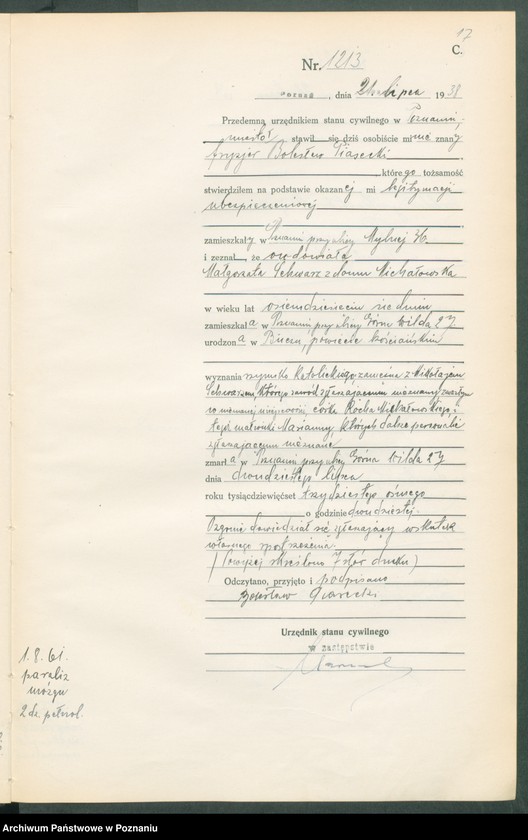 17
C.
Nr. 1213
Poznań, dnia 21 lipca 1938
Przedemną urzędnikiem stanu cywilnego w Poznaniu,
stawił się dziś osobiście mi znany
fryzjer Bolesław Piasecki
którego tożsamość
stwierdziłem na podstawie okazanej mi legitymacji
ubezpieczeniowej
zamieszkały w Poznaniu przy ulicy Mylnej 36
i zeznał, że owdowiała
Małgorzata Schwarz z domu Michałowska
w wieku lat osiemdziesięciu siedmiu
zamieszkała w Poznaniu, przy ulicy Górna Wilda 27
urodzona w powiecie kościańskim
wyznania rzymsko katolickiego, zamężna z Mikołajem
Schwarzem, którego zawód zgłaszającemu nieznany
w nieznanej miejscowości, córka Rocha Michałowskiego i
tegoż małżonki Marianny, których dalsze personalia
zgłaszającemu nieznane
zmarła w Poznaniu przy ulicy Górna Wilda 27
dnia dwudziestego lipca
roku tysiącdziewięćset trzydziestego ósmego
o godzinie dwudziestej.
O zgonie dowiedział się zgłaszający wskutek
własnego spostrzeżenia.
(Powyżej skreślono 7 słów druku)
Odczytano, przyjęto i podpisano
Bolesław Piasecki
Urzędnik stanu cywilnego
w zastępstwie
1. 8. 61.
paraliż
mózgu
2 dz. pełnol.
Archiwum Państwowe w Poznaniu